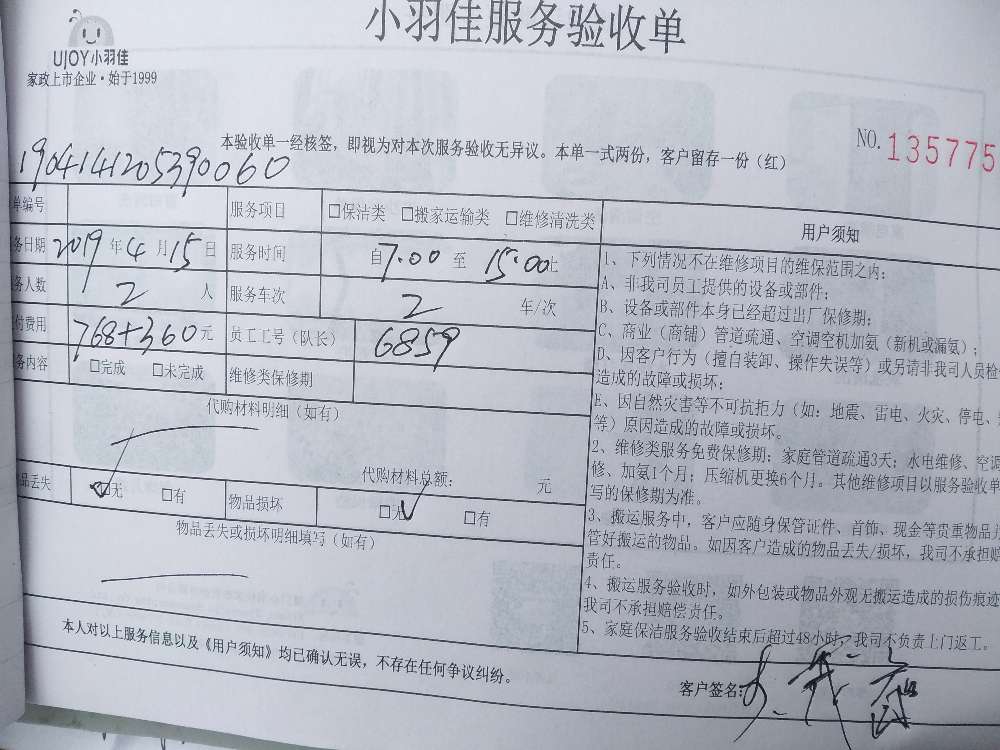 小羽佳服务验收单
UJOY小羽佳
家政上市企业·始于1999
本验收单一经核签，即视为对本次服务验收无异议。本单一式两份，客户留存一份（红）
NO.135775
1904141205390060
单编号 服务项目 □保洁类 □搬家运输类 □维修清洗类
务日期 2019年4月15日 服务时间 自7:00至15:00止
务人数 2人 服务车次 2车/次
付费用 768+360元 员工工号（队长） 6859
务内容 □完成 □未完成 维修类保修期
代购材料明细（如有）
代购材料总额： 元
品丢失 □无 □有 物品损坏 □无 □有
物品丢失或损坏明细填写（如有）
用户须知
1、下列情况不在维修项目的维保范围之内：
A、非我司员工提供的设备或部件；
B、设备或部件本身已经超过出厂保修期；
C、商业（商铺）管道疏通、空调空机加氨（新机或漏氨）；
D、因客户行为（擅自装卸、操作失误等）或另请非我司人员检
造成的故障或损坏；
E、因自然灾害等不可抗拒力（如：地震、雷电、火灾、停电、
等）原因造成的故障或损坏。
2、维修类服务免费保修期：家庭管道疏通3天；水电维修、空调
修、加氨1个月；压缩机更换6个月。其他维修项目以服务验收单
写的保修期为准。
3、搬运服务中，客户应随身保管证件、首饰、现金等贵重物品并
管好搬运的物品。如因客户造成的物品丢失/损坏，我司不承担赔
责任。
4、搬运服务验收时，如外包装或物品外观无搬运造成的损伤痕迹
我司不承担赔偿责任。
5、家庭保洁服务验收结束后超过48小时，我司不负责上门返工。
本人对以上服务信息以及《用户须知》均已确认无误，不存在任何争议纠纷。
客户签名: